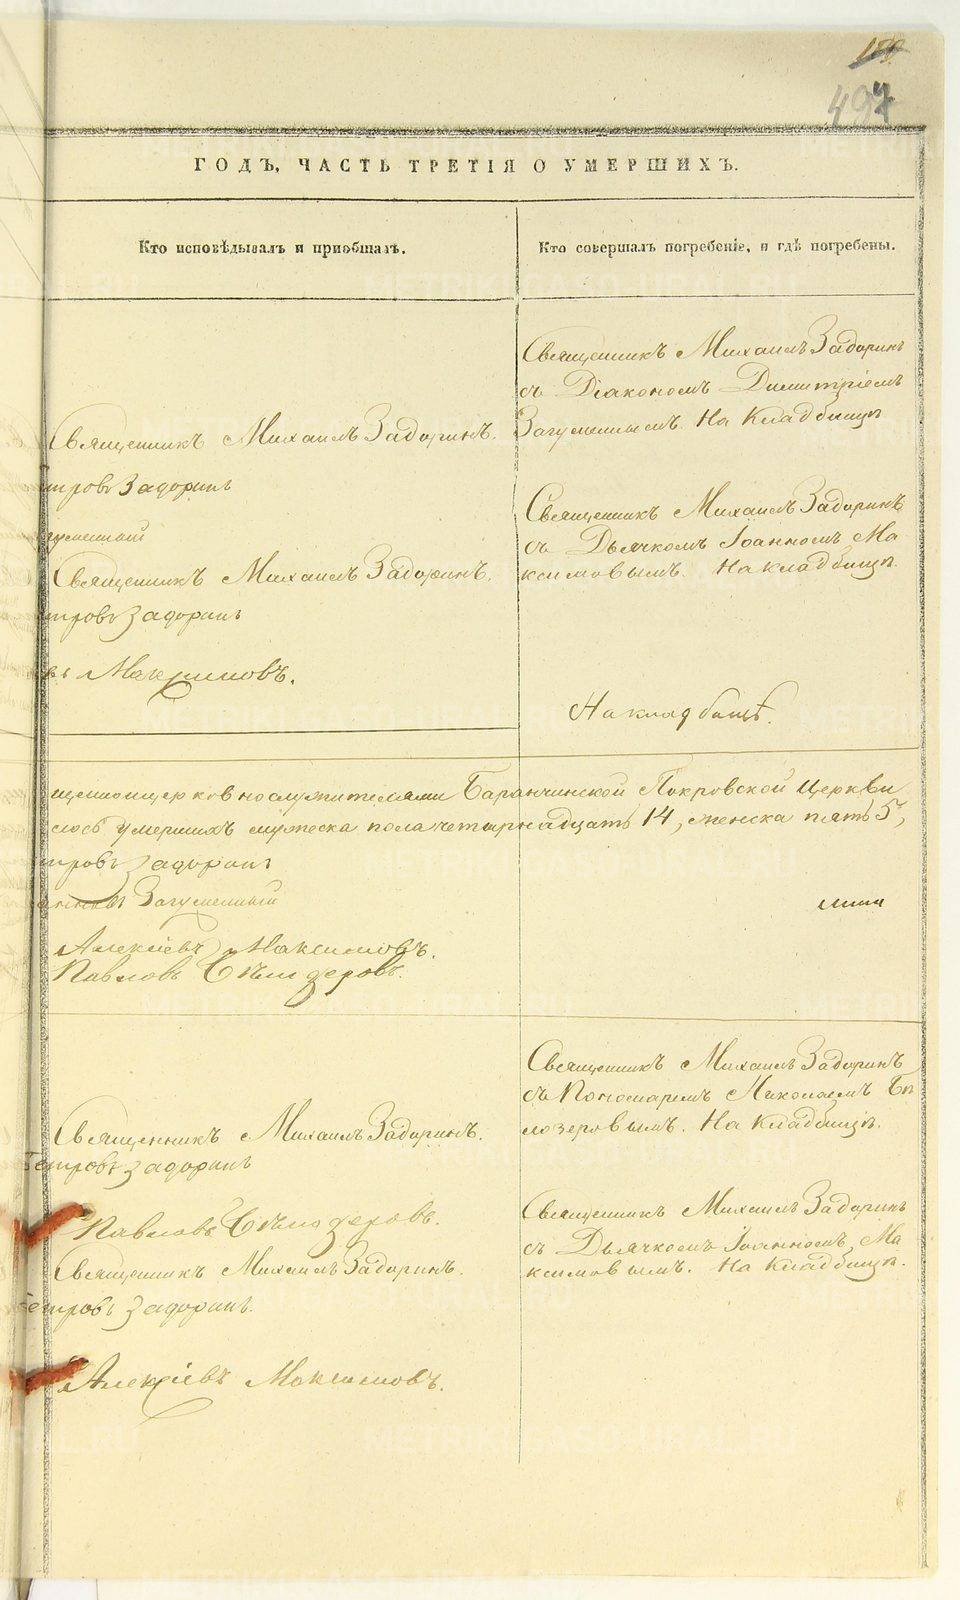 497
ГОДЪ, ЧАСТЬ ТРЕТІЯ О УМЕРШИХЪ.
Кто исповѣдывалъ и приобщалъ.
Кто совершалъ погребеніе, и гдѣ погребены.
Священникъ Михаилъ Задоринъ
съ Діакономъ Димитріемъ
Загуменнымъ. На Кладбищѣ
Священникъ Михаилъ Задоринъ.
тровъ Задоринъ
Священникъ Михаилъ Задоринъ
съ Дьячкомъ Іоанномъ Ма
ксимовымъ. На Кладбищѣ.
гуменный
Священникъ Михаилъ Задоринъ.
тровъ Задоринъ
въ Максимовъ.
На кладбищѣ.
щенноцерковнослужителями Баранчинской Покровской Церкви
лось умершихъ мужеска пола четырнадцать 14, женска пять 5,
тровъ Задоринъ
Загуменный
Алексіевъ Максимовъ.
Павловъ Бѣлозеровъ.
Священникъ Михаилъ Задоринъ
съ Пономаремъ Николаемъ Бѣ
лозеровымъ. На Кладбищѣ.
Священникъ Михаилъ Задоринъ.
Петровъ Задоринъ
Павловъ Бѣлозеровъ.
Священникъ Михаилъ Задоринъ
съ Дьячкомъ Іоанномъ Ма
ксимовымъ. На Кладбищѣ.
Священникъ Михаилъ Задоринъ.
Петровъ Задоринъ.
Алексіевъ Максимовъ.
METRIKI.GASO-URAL.RU